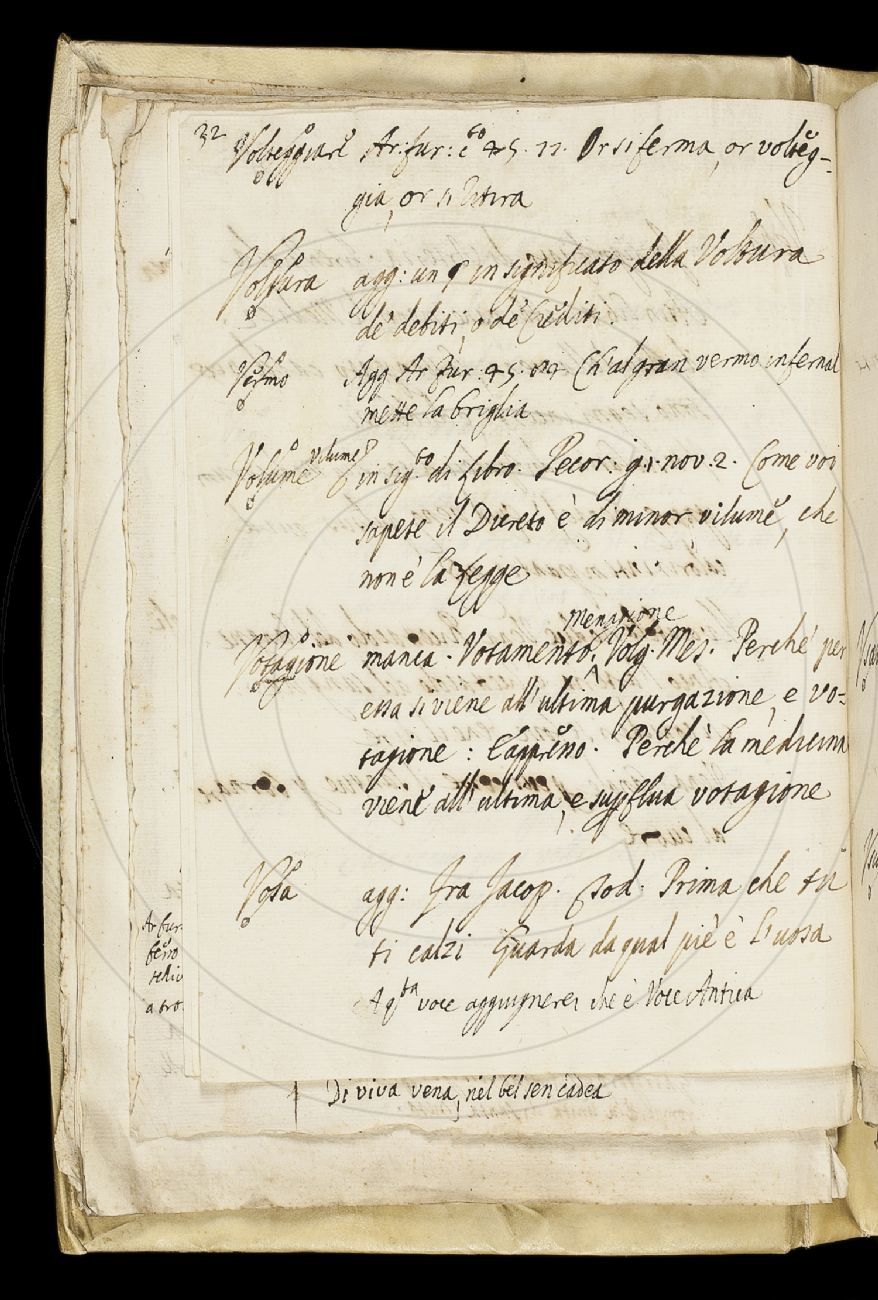 32 Volteggiare Ar: fur: c.to 45. 77. Or si ferma, or volteg-
gia, or si ritira
Voltura agg: un § in significato della Voltura
de' debiti, o de' Crediti.
Vermo Agg Ar. Fur: 45. Ch'al gran vermo infernal
mette la briglia
Volume vilume in sig.to di Libro. Pecor: g: 1 nov: 2. Come voi
sapete il Dicreto è di minor vilume, che
non è la Legge
Menagione
Votagione manca. Votamento. Volg. Mes. Perchè per
essa si viene all'ultima purgazione, e vo-
tagione: e appresso. Perchè la medicina
viene all'ultima, e supflua votagione
Vosa agg: Fra Jacop. Tod. Prima che tu
ti calzi Guarda da qual piè è l'uosa
A q.ta voce aggiugnerei che è Voce Antica
Ar fur:
ferro
a tro
Di viva vena, nel bel sen cadea